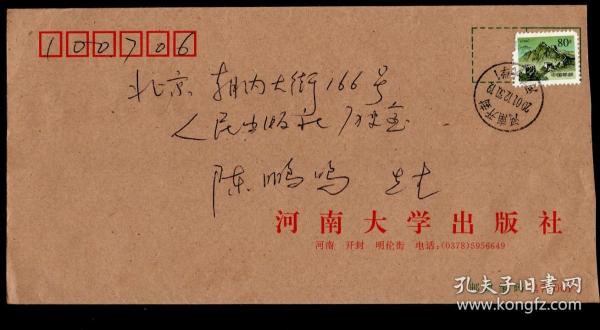 100706
80分
中国邮政
河南开封
2001.12.31.12
北京 朝内大街166号
人民出版社 历史室
陈鹏鸣 先生
河南大学出版社
河南 开封 明伦街 电话:(0378)5956649
孔夫子旧书网
www.kongfz.com